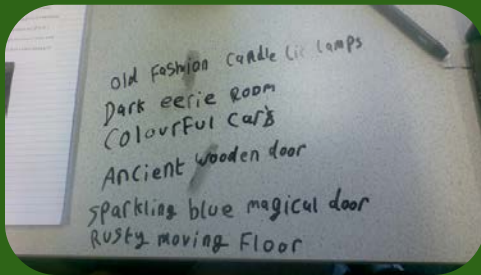 old Fashion candle lit lamps
Dark eerie Room
Colourful cars
Ancient wooden door
sparkling blue magical door
Rusty moving Floor